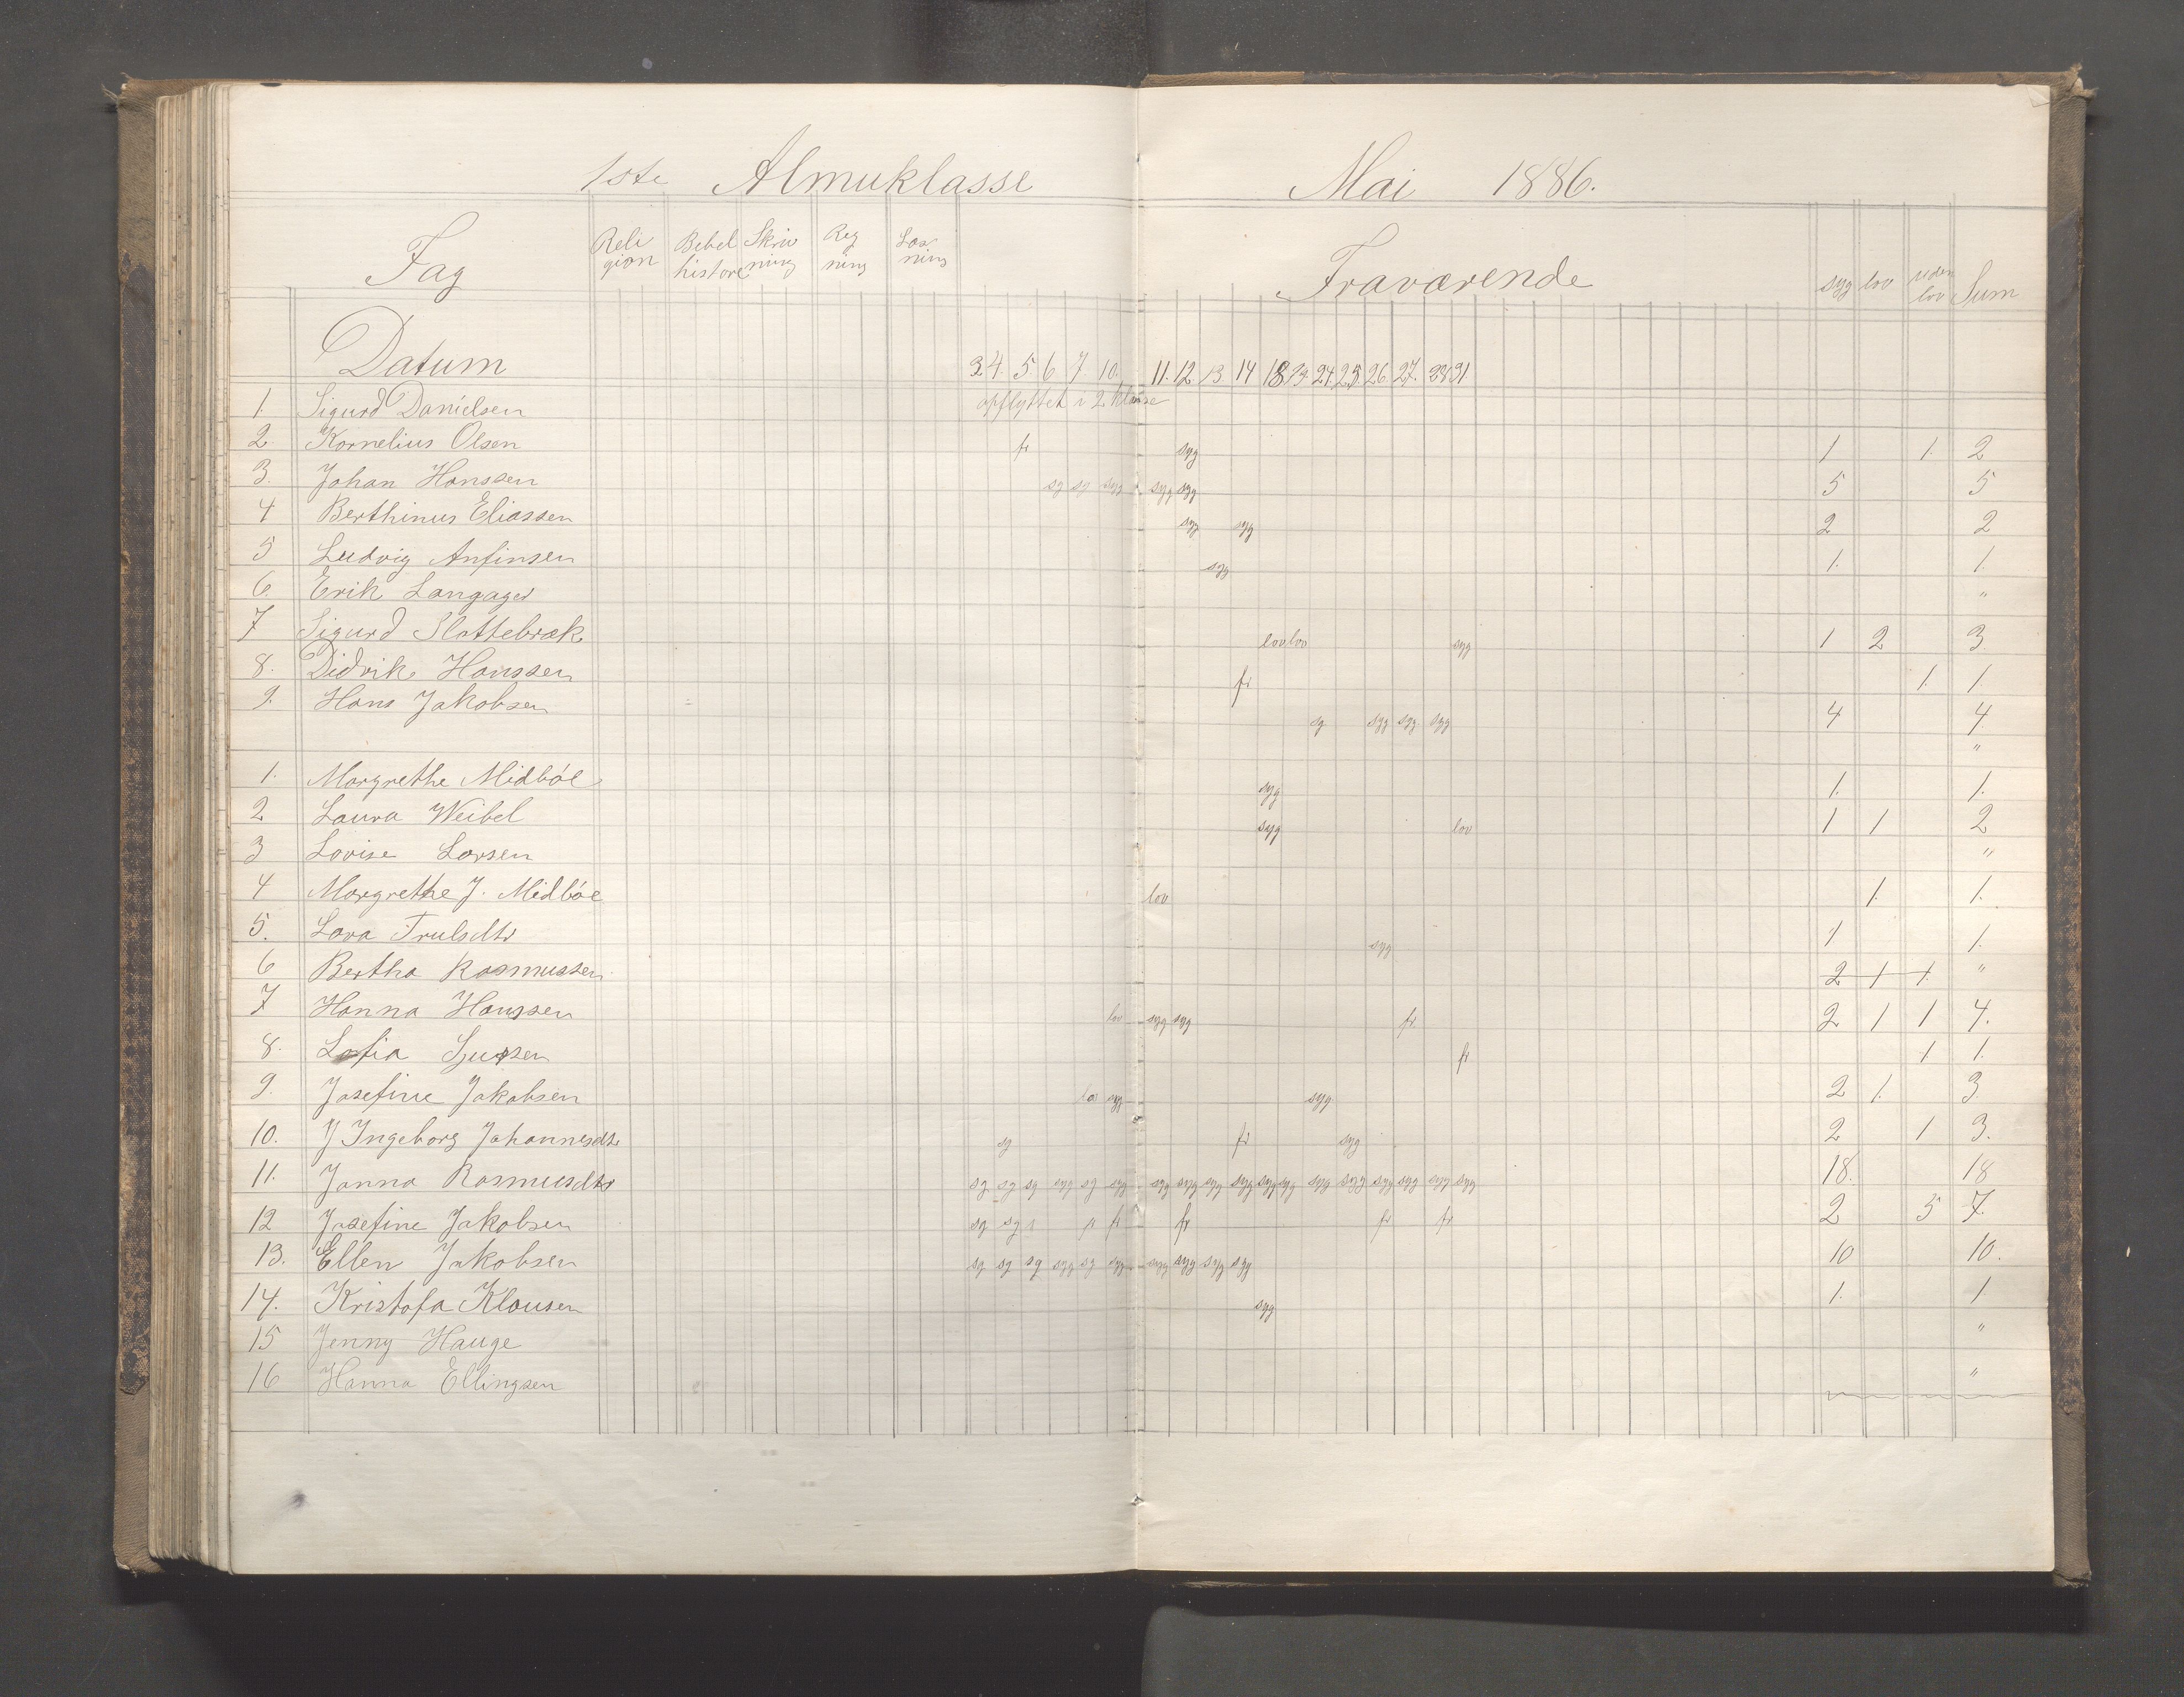 1ste Almuklasse Mai 1886.
Fag Reli gion Bibel historie Skriv ning Reg ning Læs ning Fraværende syg lov uden lov Sum
Datum 3 4. 5 6 7. 10. 11. 12 13. 14 18 19. 24. 25. 26. 27. 28 31
1. Sigurd Danielsen opflyttet i 2 klasse
2. Kornelius Olsen fr syg 1 1. 2
3. Johan Hanssen sg sg syg syg syg 5 5
4 Berthinus Eliassen syg syg 2 2
5 Ludvig Anfinsen syg 1. 1.
6. Erik Langager "
7 Sigurd Slottebræk lov lov syg 1 2 3.
8. Didrik Hanssen fr 1. 1
9. Hans Jakobsen sg syg syg syg 4 4
"
1. Margrethe Midbøe syg 1. 1.
2 Laura Weibel syg lov 1 1 2
3 Lovise Larsen "
4 Margrethe J. Midbøe lov 1. 1.
5. Lava Trulsdtr syg 1 1.
6 Bertha Rasmussen 2 1 1. "
7 Hanna Hanssen lov syg syg fr 2 1 1 4.
8. Sofia Sjursen fr 1. 1.
9. Josefine Jakobsen lov syg syg. 2 1. 3
10. J Ingeborg Johannesdtr sg fr syg 2 1 3.
11. Janna Rasmusdtr sg sg sg syg sg syg syg syg syg syg syg syg syg syg syg syg syg syg 18. 18
12 Josefine Jakobsen sg sg fr fr fr fr 2 5 7.
13. Ellen Jakobsen sg sg sg syg sg syg syg syg syg syg 10 10.
14. Kristofa Klausen syg 1. 1
15 Jenny Hauge "
16 Hanna Ellingsen "